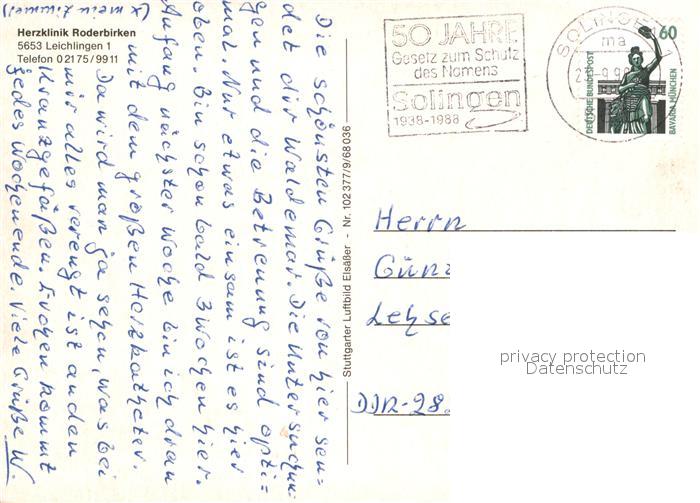 Herzklinik Roderbirken
5653 Leichlingen 1
Telefon 0 21 75 / 99 11
(x mein Zimmer)
Die schönsten Grüße von hier sen=
det dir Waldemar. Die Untersuchun
gen und die Betreuung sind opti=
mal. Nur etwas einsam ist es hier
oben. Bin schon bald 3 Wochen hier.
Anfang nächster Woche bin ich dran
mit dem großen Herzkatheter.
Da wird man ja sehen, was bei
mir alles verengt ist an den
Kranzgefäßen. Evchen kommt
jedes Wochenende. Viele Grüße W.
Stuttgarter Luftbild Elsäßer - Nr. 102 377/9/68 036
50 JAHRE
Gesetz zum Schutz
des Namens
Solingen
1938-1988
SOLINGEN 1
ma
60
DEUTSCHE BUNDESPOST
BAVARIA MÜNCHEN
Herrn
Günz
Lehse
DDR-28
privacy protection
Datenschutz